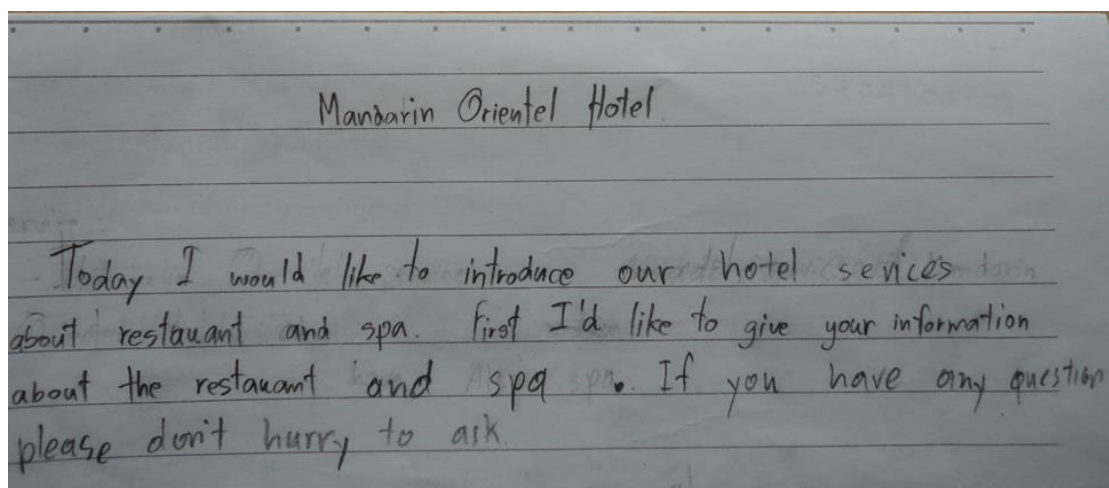 Mandarin Orientel Hotel
Today I would like to introduce our hotel sevices
about restauant and spa. First I'd like to give your information
about the restauant and spa. If you have any question
please don't hurry to ask.